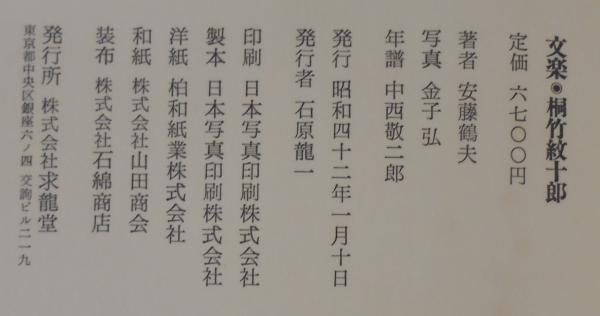 文楽◉桐竹紋十郎
定価 六七〇〇円
著者 安藤鶴夫
写真 金子 弘
年譜 中西敬二郎
発行 昭和四十二年一月十日
発行者 石原龍一
印刷 日本写真印刷株式会社
製本 日本写真印刷株式会社
洋紙 柏和紙業株式会社
和紙 株式会社山田商会
装布 株式会社石綿商店
発行所 株式会社求龍堂
東京都中央区銀座六ノ四 交詢ビル二一九